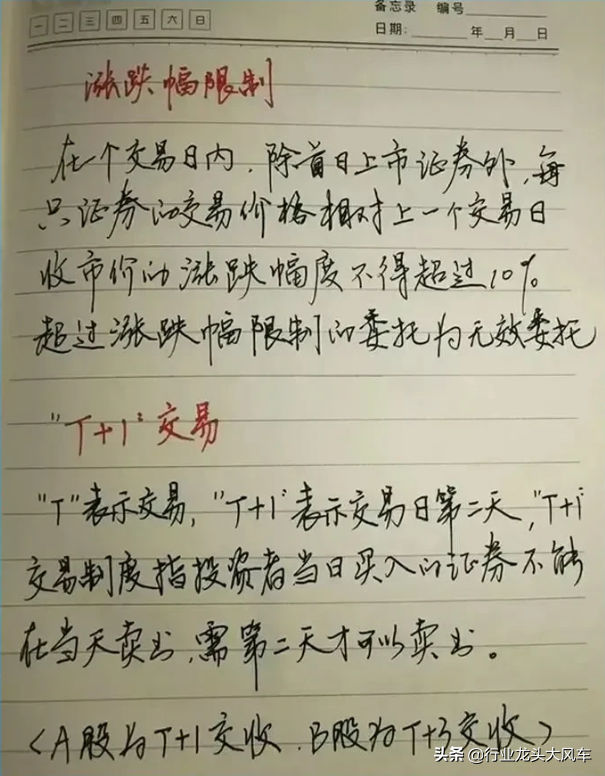 一 二 三 四 五 六 日
备忘录 编号
日期: 年 月 日
涨跌幅限制
在一个交易日内,除首日上市证券外,每
只证券的交易价格相对上一个交易日
收市价的涨跌幅度不得超过10%
超过涨跌幅限制的委托为无效委托
"T+1"交易
"T"表示交易,"T+1"表示交易日第二天,"T+1"
交易制度指投资者当日买入的证券不能
在当天卖出,需第二天才可以卖出。
(A股为T+1交收.B股为T+3交收)
头条 @行业龙头大风车